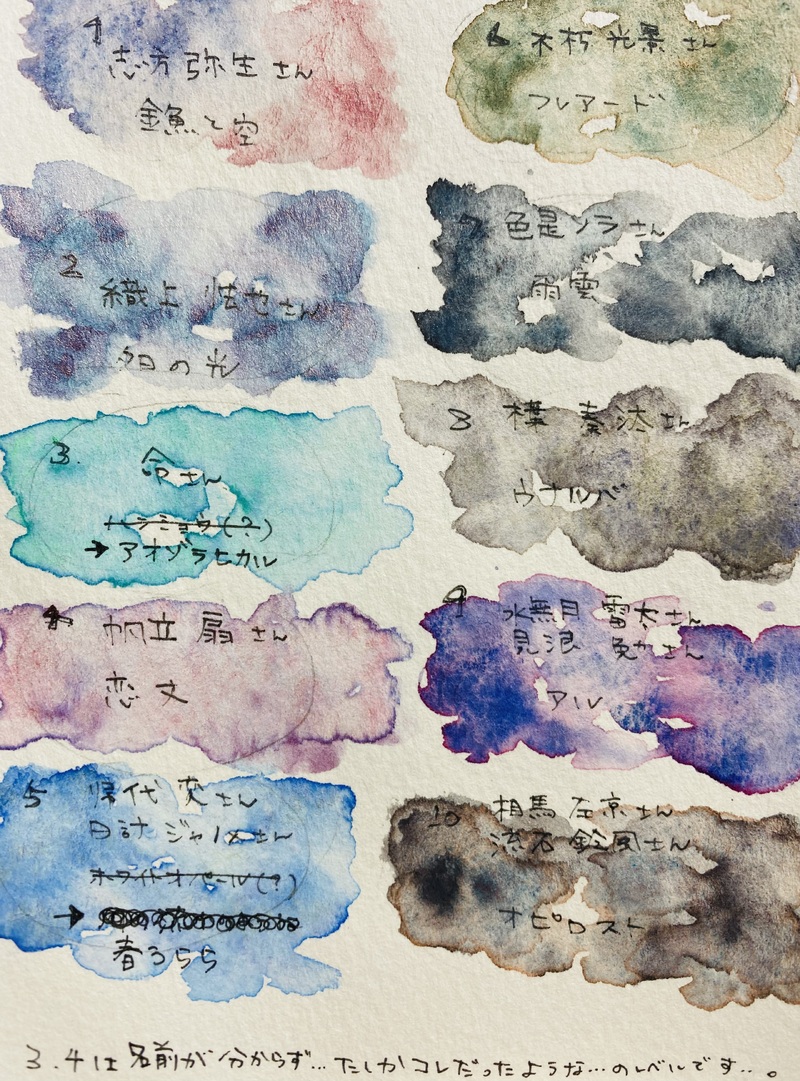 1
志方 弥生 さん
金魚と空
2
織上 怯也さん
夕日の光
3.
命さん
ハラショウ(?)
→ アオゾラヒカル
4
帆立 扇 さん
恋文
5
帰代 変さん
日計 ジャノメさん
ホワイトオパール(?)
→
春うらら
6 不朽 光景 さん
フレアード
7 色是ソラさん
雨雲
8 楪 奏汰さん
ウナルバ
9
水無月 雷太さん
見浪 勉さん
アル
10
相馬 左京さん
流石 鈴風さん
オピロスト
3.4は名前が分からず… たしかコレだったような…のレベルです…。